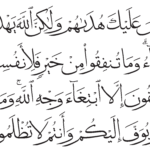 عَلَيْكَ هُدَىٰهُمْ وَلَٰكِنَّ ٱللَّهَ يَهْدِ
وَمَا تُنفِقُوا۟ مِنْ خَيْرٍ فَلِأَنفُسِ
قُونَ إِلَّا ٱبْتِغَآءَ وَجْهِ ٱللَّهِ ۚ وَمَ
يُوَفَّ إِلَيْكُمْ وَأَنتُمْ لَا تُظْلَمُو